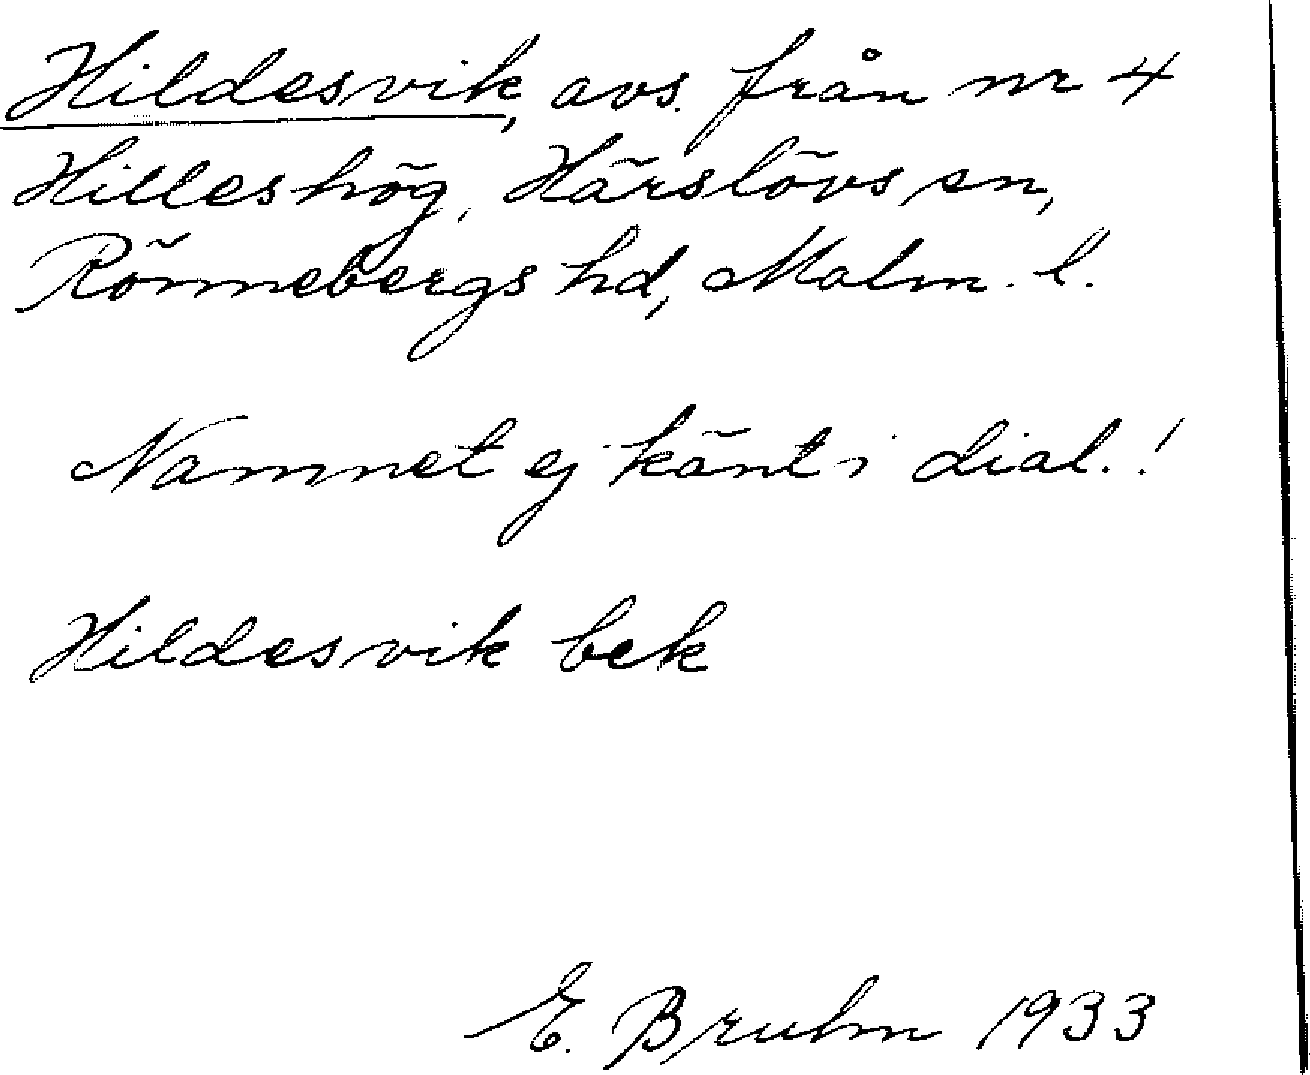 Hildesvik, avs. från nr 4
Hilleshög, Härslövs sn,
Rönnebergs hd, Malm. l.
Namnet ej känt i dial.!
Hildesvik bek
E. Bruhn 1933